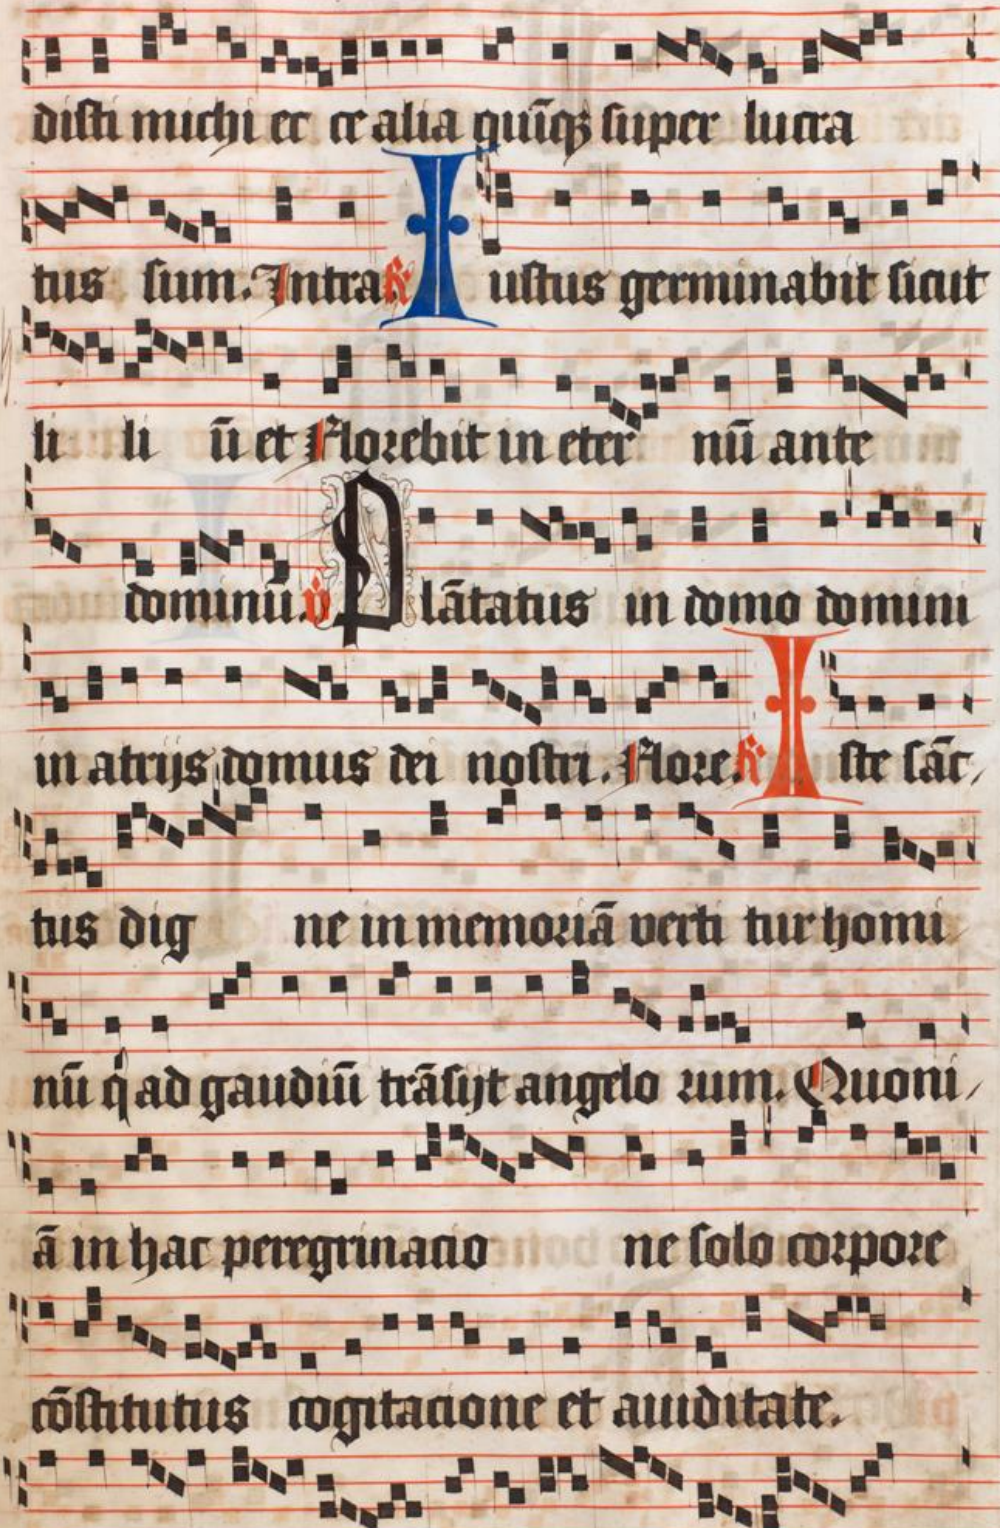 disti michi et ce alia quīqꝫ super lucra
tus sum. Intra ℟ Iustus germinabit sicut
li li ū et Florebit in eter nū ante
dominū. ℣ Plātatus in domo domini
in atrijs domus dei nostri. Flore. ℟ Iste sāc
tus dig ne in memoriā verti tur homi
nū q̇ ad gaudiū trāsijt angelo rum. Quoni
ā in hac peregrinacio ne solo corpore
cōstitutus cogitacione et auiditate.